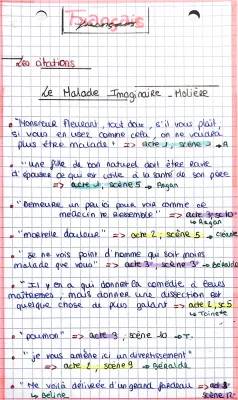 Français
Les citations
Le Malade Imaginaire - Molière
• "Monsieur Fleurant, tout doux, s'il vous plaît,
si vous en usez comme cela, on ne voudra
plus être malade" => acte 1, scène 1 → A
• "une fille de bon naturel doit être ravie
d'épouser ce qui est utile à la santé de son père
=> acte 1, scène 5 → Argan
• "Demeurez un peu ici pour voir comme ce
médecin te ressemble" => acte 3, sc10
→ Argan
• "mortelle douleur" => acte 2, scène 5 →
• "Je ne vois point d'homme qui soit moins
malade que vous" => acte 3, scène 3 → Béralde
• "Il y en a qui donnent la comédie à leurs
maîtresses, mais donner une dissection est
quelque chose de plus galant" => acte 2, sc5
→ Toinette
• "poumon" => acte 3, scène 10 → T.
• "je vous amène ici un divertissement"
=> acte 2, scène 9 → Béralde
• "Me voilà délivrée d'un grand fardeau => acte 3
→ Béline scène 12